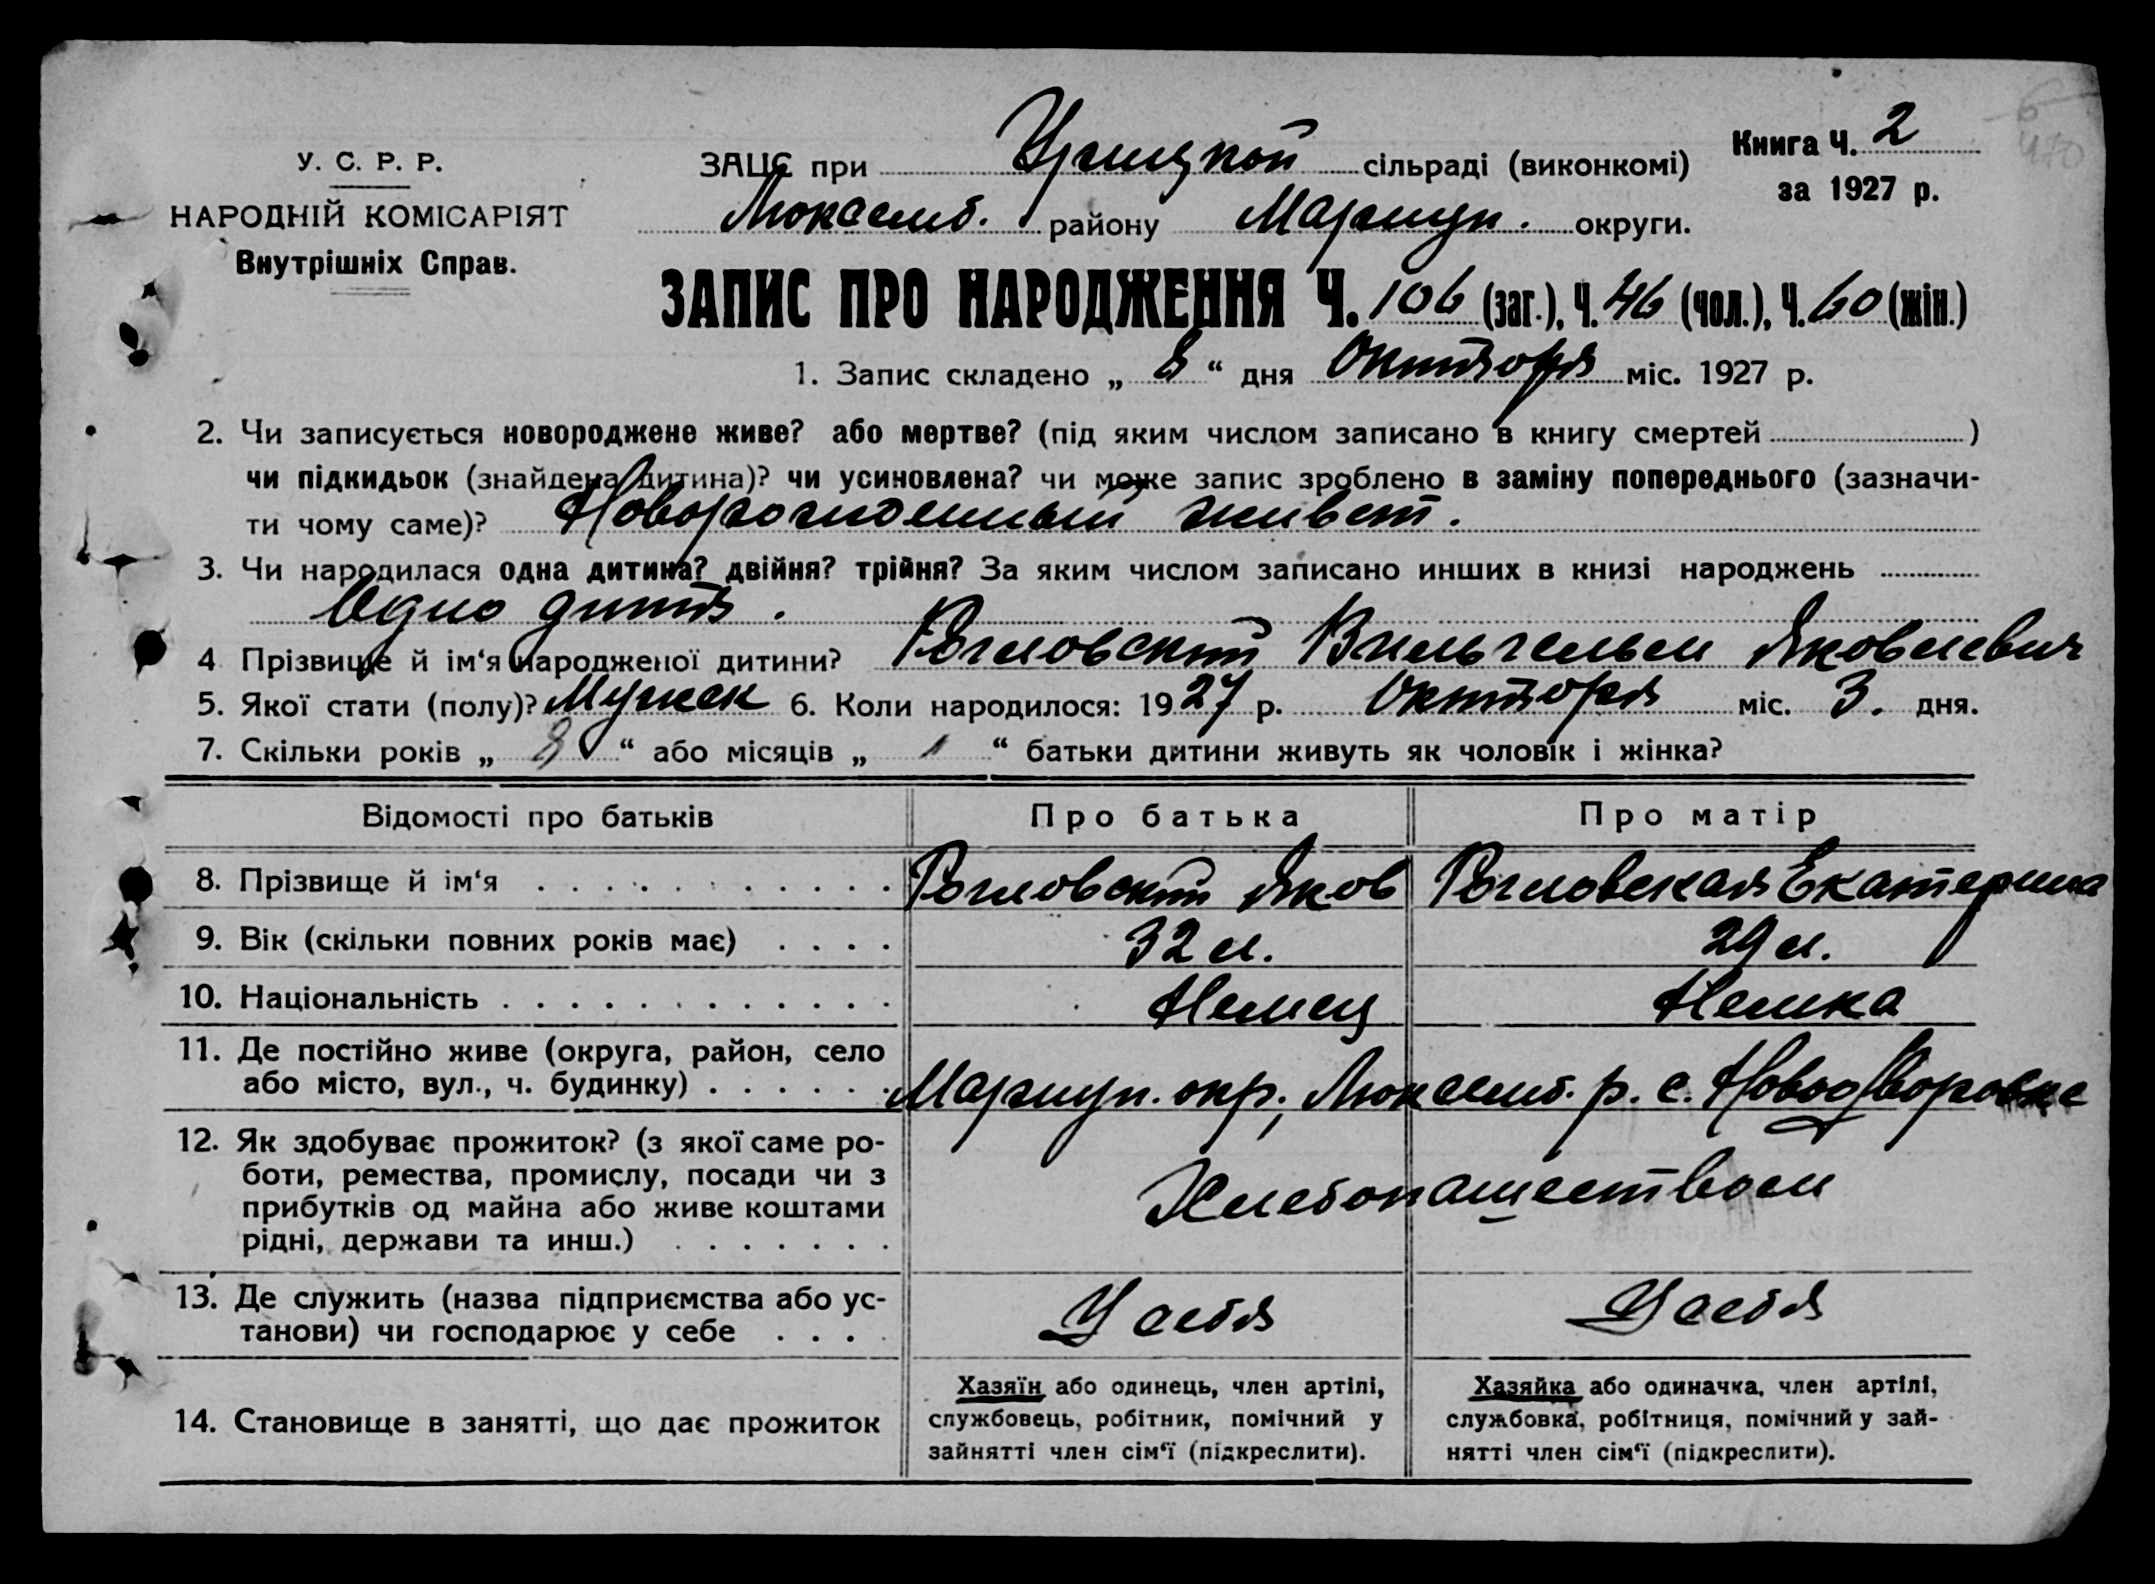 У. С. Р. Р.
НАРОДНІЙ КОМІСАРІЯТ
Внутрішніх Справ.
Книга Ч. 2
за 1927 р.
ЗАЦС при Урицкой сільраді (виконкомі)
Люксемб. району Мариуп. округи.
ЗАПИС ПРО НАРОДЖЕННЯ Ч. 106 (заг.), Ч. 46 (чол.), Ч. 60 (жін.)
1. Запис складено „ 8 “ дня Октября міс. 1927 р.
2. Чи записується новороджене живе? або мертве? (під яким числом записано в книгу смертей )
чи підкидьок (знайдена дитина)? чи усиновлена? чи може запис зроблено в заміну попереднього (зазначи-
ти чому саме)? Новорожденный живет.
3. Чи народилася одна дитина? двійня? трійня? За яким числом записано инших в книзі народжень
Одно дитя.
4 Прізвище й ім‘я народженої дитини? Вильгельм Яковлевич
5. Якої стати (полу)? Мужск 6. Коли народилося: 1927 р. Октября міс. 3. дня.
7. Скільки років „ 8 “ або місяців „ “ батьки дитини живуть як чоловік і жінка?
Відомості про батьків Про батька Про матір
8. Прізвище й ім‘я Яков Екатерина
9. Вік (скільки повних років має) 32 л. 29 л.
10. Національність Немец Немка
11. Де постійно живе (округа, район, село
або місто, вул., ч. будинку) Мариуп. окр., Люксемб. р. с. Новодворовке
12. Як здобуває прожиток? (з якої саме ро-
боти, ремества, промислу, посади чи з
прибутків од майна або живе коштами
рідні, держави та инш.) Хлебопашеством
13. Де служить (назва підприємства або ус-
танови) чи господарює у себе У себя У себя
14. Становище в занятті, що дає прожиток
Хазяїн або одинець, член артілі,
службовець, робітник, помічний у
зайнятті член сім‘ї (підкреслити).
Хазяйка або одиначка, член артілі,
службовка, робітниця, помічний у зай-
нятті член сім‘ї (підкреслити).